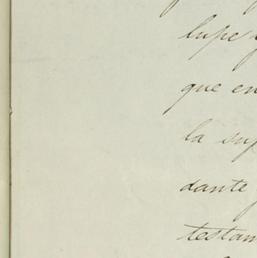 lupe
que en
la sup
dante
testam